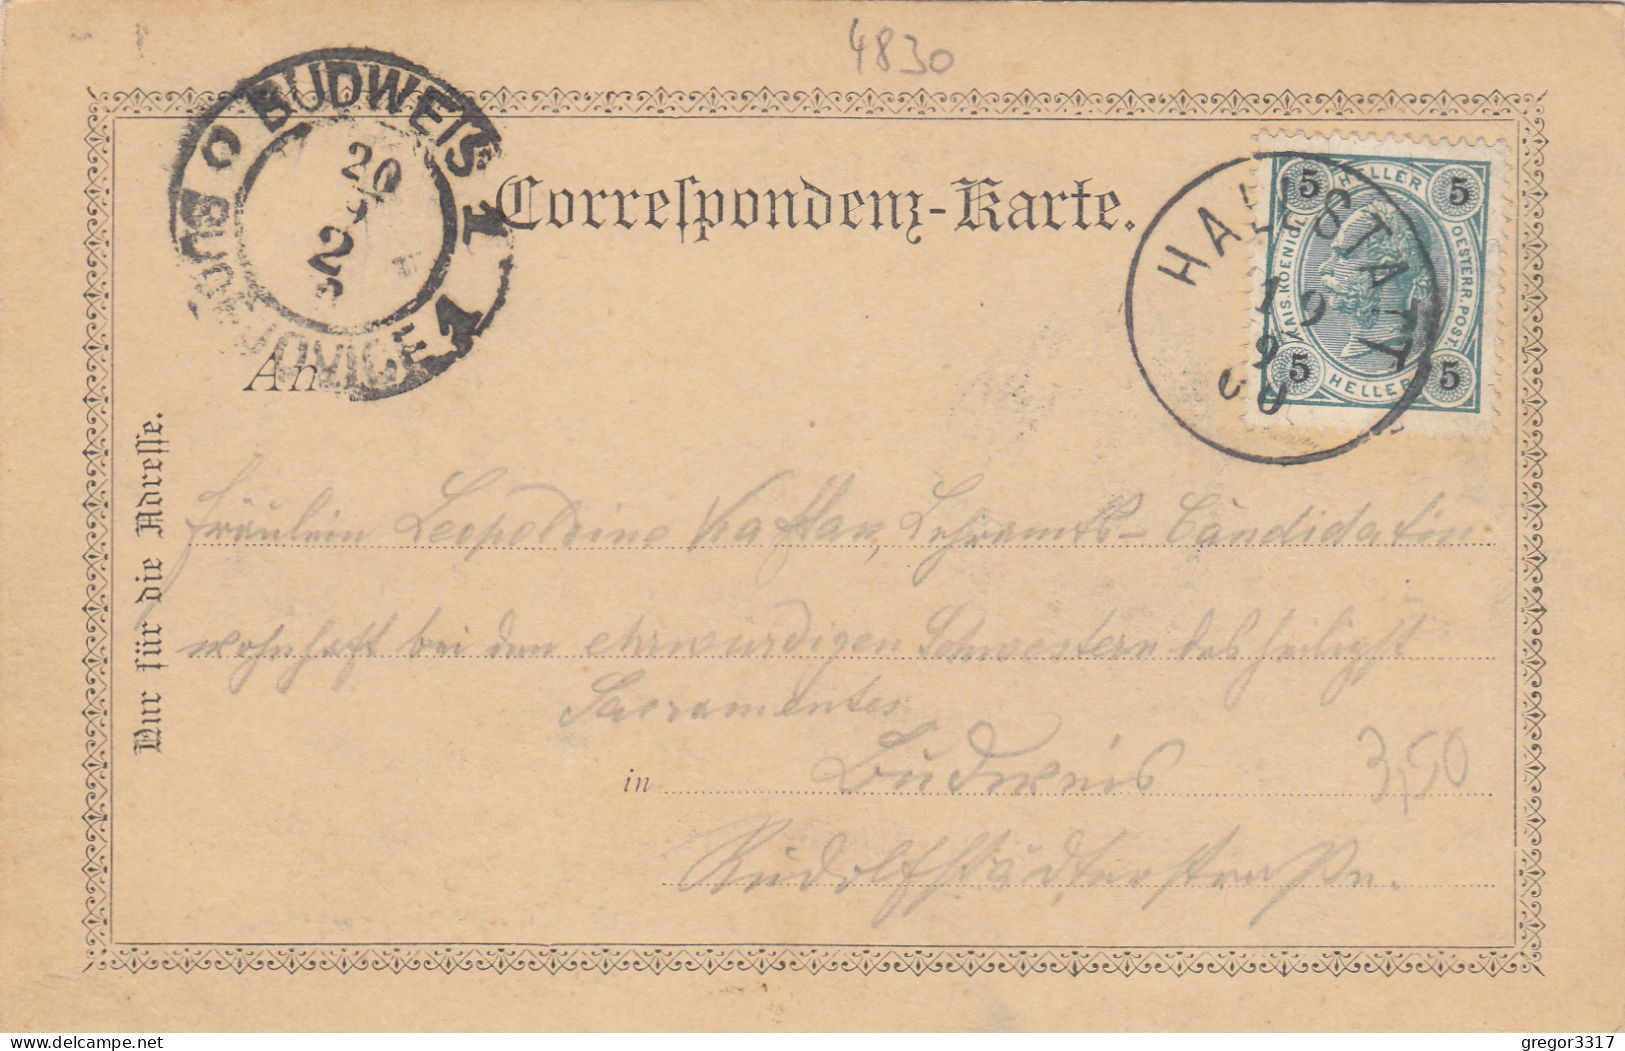 4830
BUDWEIS 1
20
9
2
BUDĚJOVICE 1
Correspondenz-Karte.
HALLSTATT
19
9
00
5 HELLER 5
KAIS. KOENIGL.
OESTERR. POST.
5 HELLER 5
An
Nur für die Adresse.
Fräulein Leopoldine Kaftan, Lehramts-Candidatin
wohnhaft bei den ehrwürdigen Schwestern des heiligst
Sacramentes
in Budweis
3,50
Rudolfstädterstraße.
gregor3317